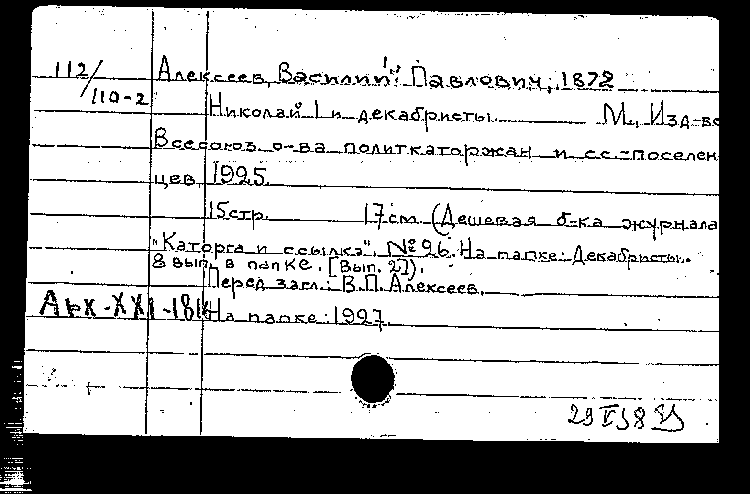 112/110-2
Алексеев, Василий Павлович, 1872
Николай I и декабристы. М., Изд-во
Всесоюз. о-ва политкаторжан и сс.-поселен
цев, 1925.
15 стр. 17 см. (Дешевая б-ка журнала
"Каторга и ссылка". № 96. На папке: Декабристы.
8 вып. в папке. [Вып. 2]).
Перед загл.: В.П. Алексеев.
Арх-XXI-181
На папке: 1927.
29 V 38